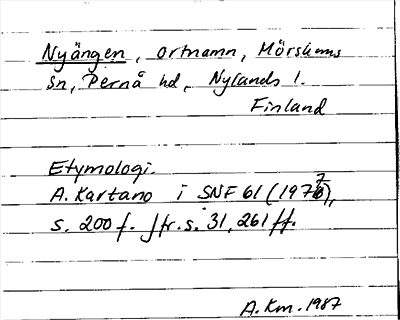 Nyängen, ortnamn, Mörskoms
sn, Pernå hd, Nylands l.
Finland
Etymologi.
A. Kartano i SNF 61 (1977),
s. 200 f. Jfr. s. 31, 261 ff.
A.Km. 1987